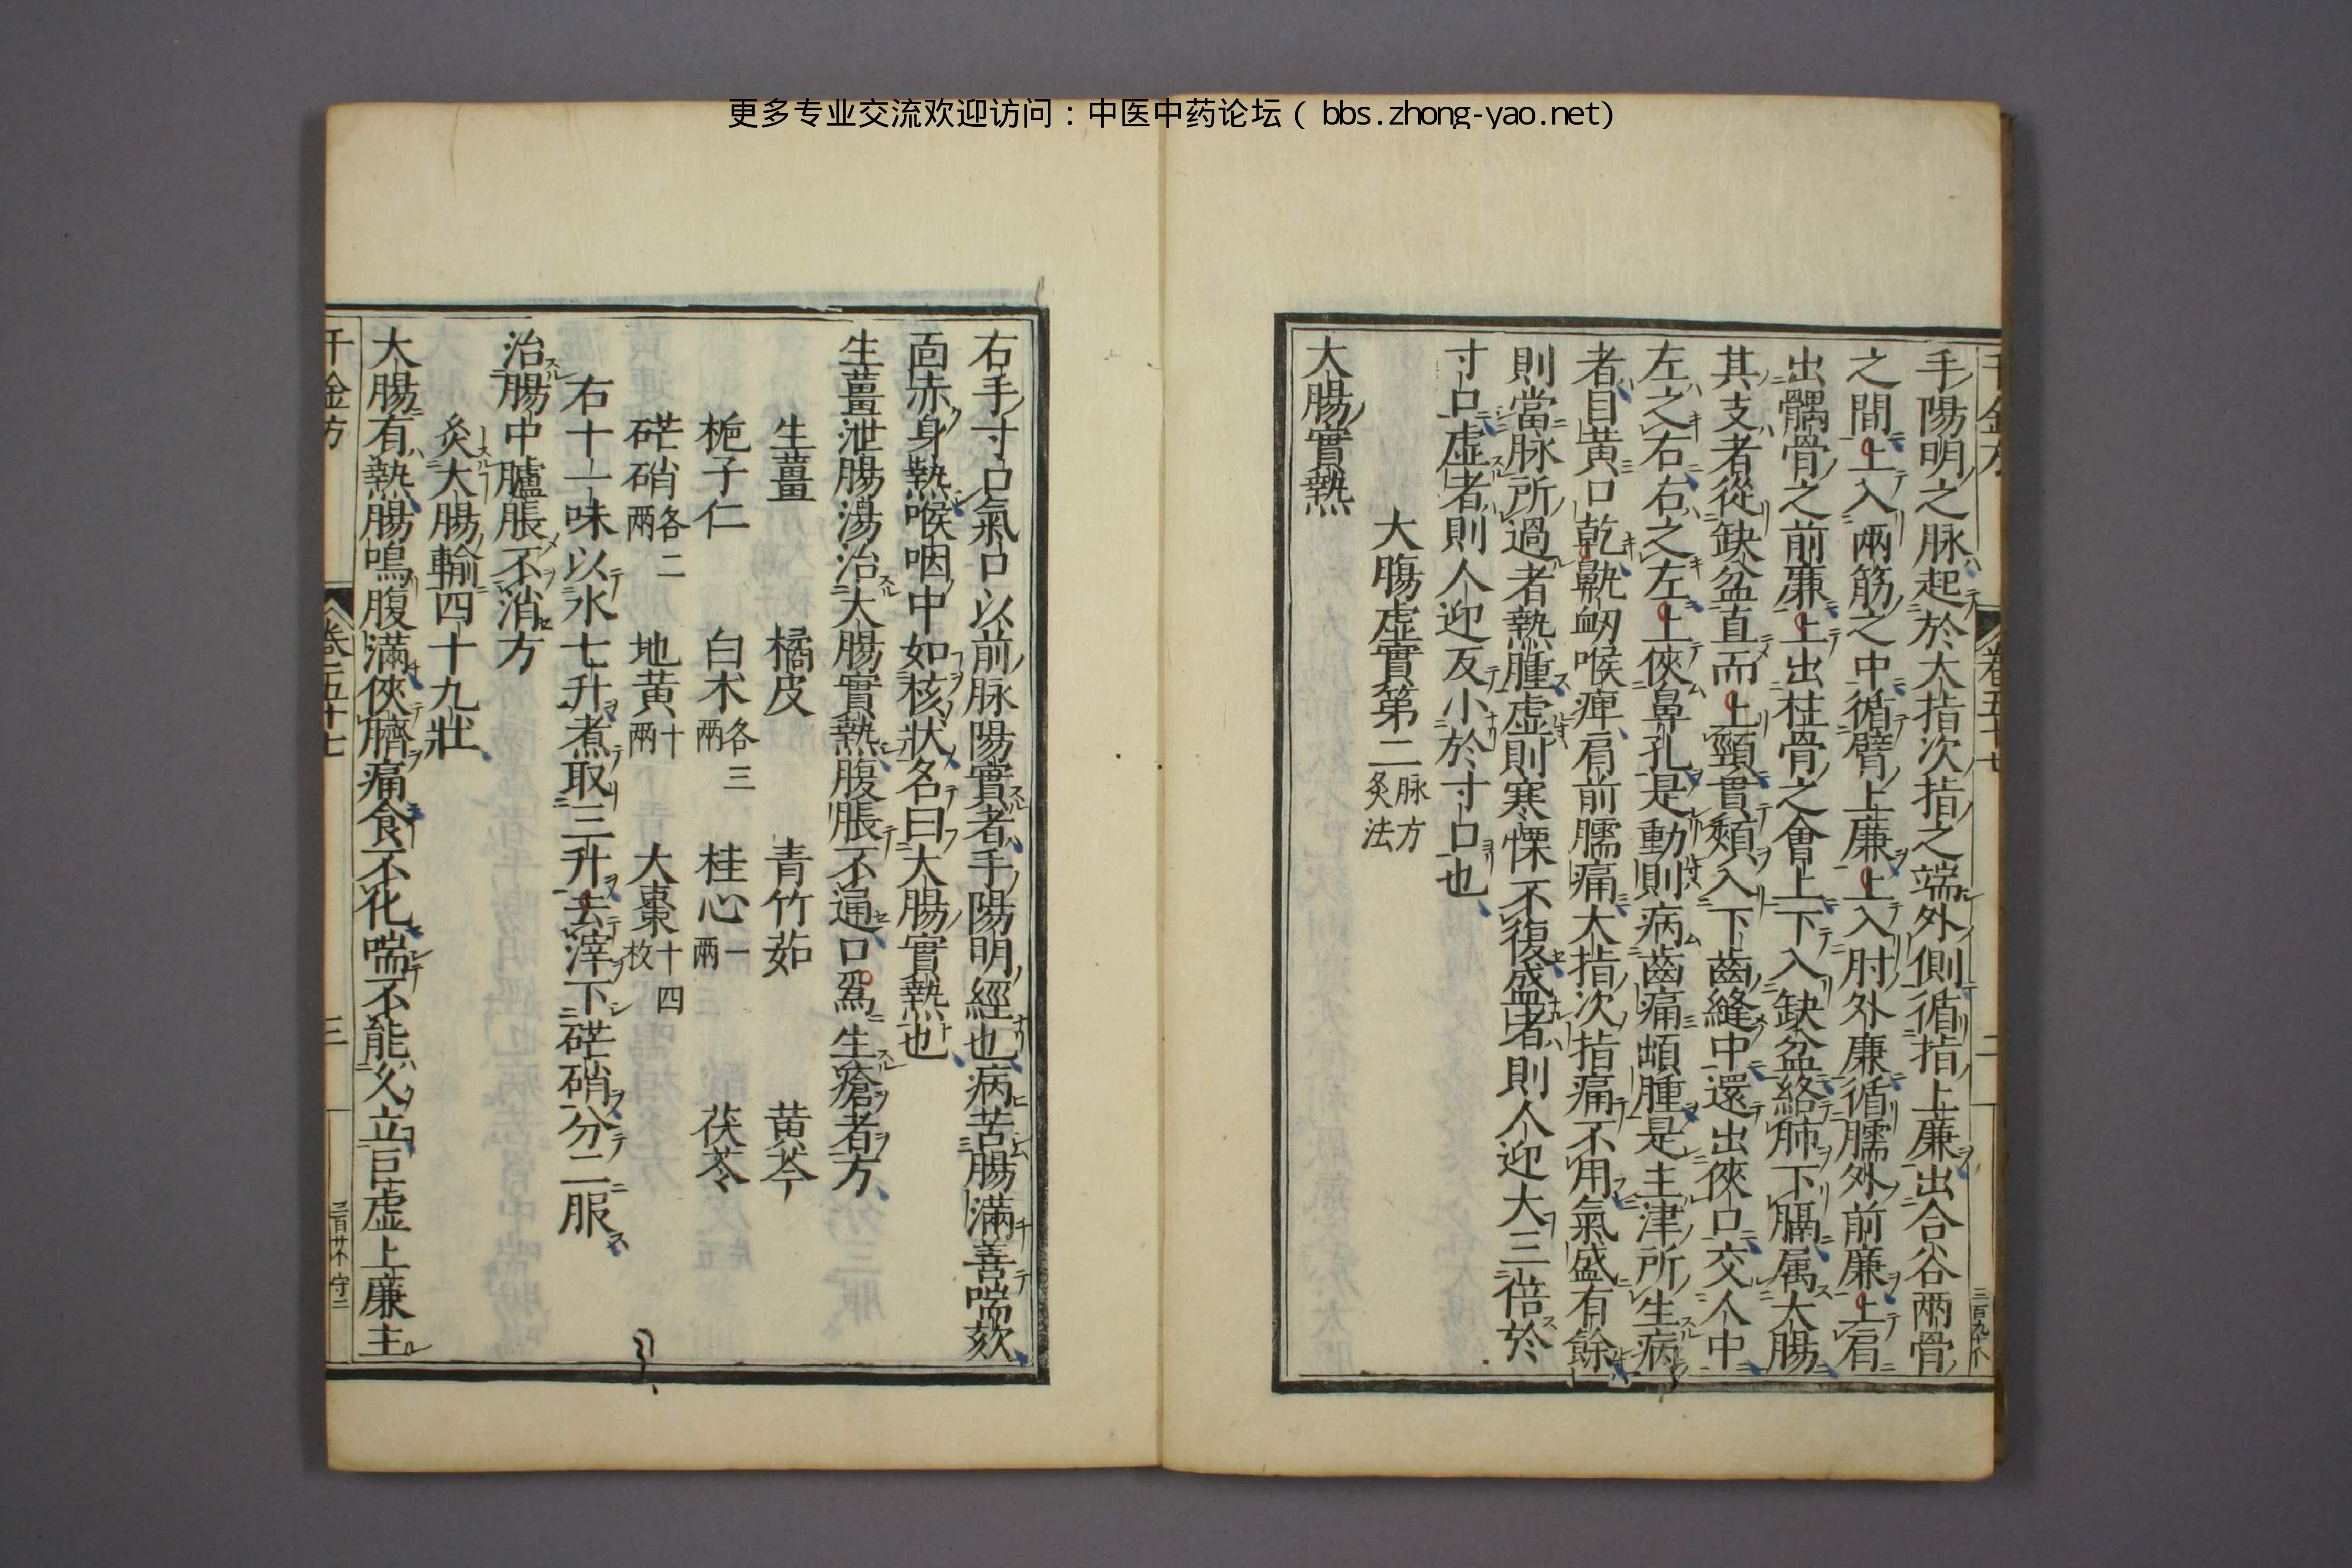 更多专业交流欢迎访问：中医中药论坛（bbs.zhong-yao.net）
手陽明之脉起於大指次指之端外側循指上廉出合谷兩骨
之間上入兩筋之中循臂上廉上入肘外廉循臑外前廉上肩
出髃骨之前廉上出柱骨之會上下入缺盆絡肺下膈属大腸
其支者從缺盆直而上頸貫頰入下齒縫中還出俠口交人中
左之右右之左上俠鼻孔是動則病齒痛䪼腫是主津所生病
者目黄口乾鼽衂喉痺肩前臑痛大指次指痛不用氣盛有餘
則當脉所過者熱腫虚則寒慄不復盛者則人迎大三倍於
寸口虚者則人迎反小於寸口也
大腸虚實第二 脉方 灸法
大腸實熱
右手寸口氣口以前脉陽實者手陽明經也病苦腸滿善喘欬
靣赤身熱喉咽中如核狀名曰大腸實熱也
生薑泄腸湯治大腸實熱腹脹不通口爲生瘡者方
生薑 橘皮 青竹茹 黄芩
梔子仁 白术各三兩 桂心一兩 茯苓
硭硝各二兩 地黄十兩 大棗十四枚
右十一味以水七升煮取三升去滓下硭硝分二服
治腸中臚脹不消方
灸大腸輸四十九壯
大腸有熱腸鳴腹滿俠臍痛食不化喘不能久立巨虚上廉主
千金方 卷之五十七 三